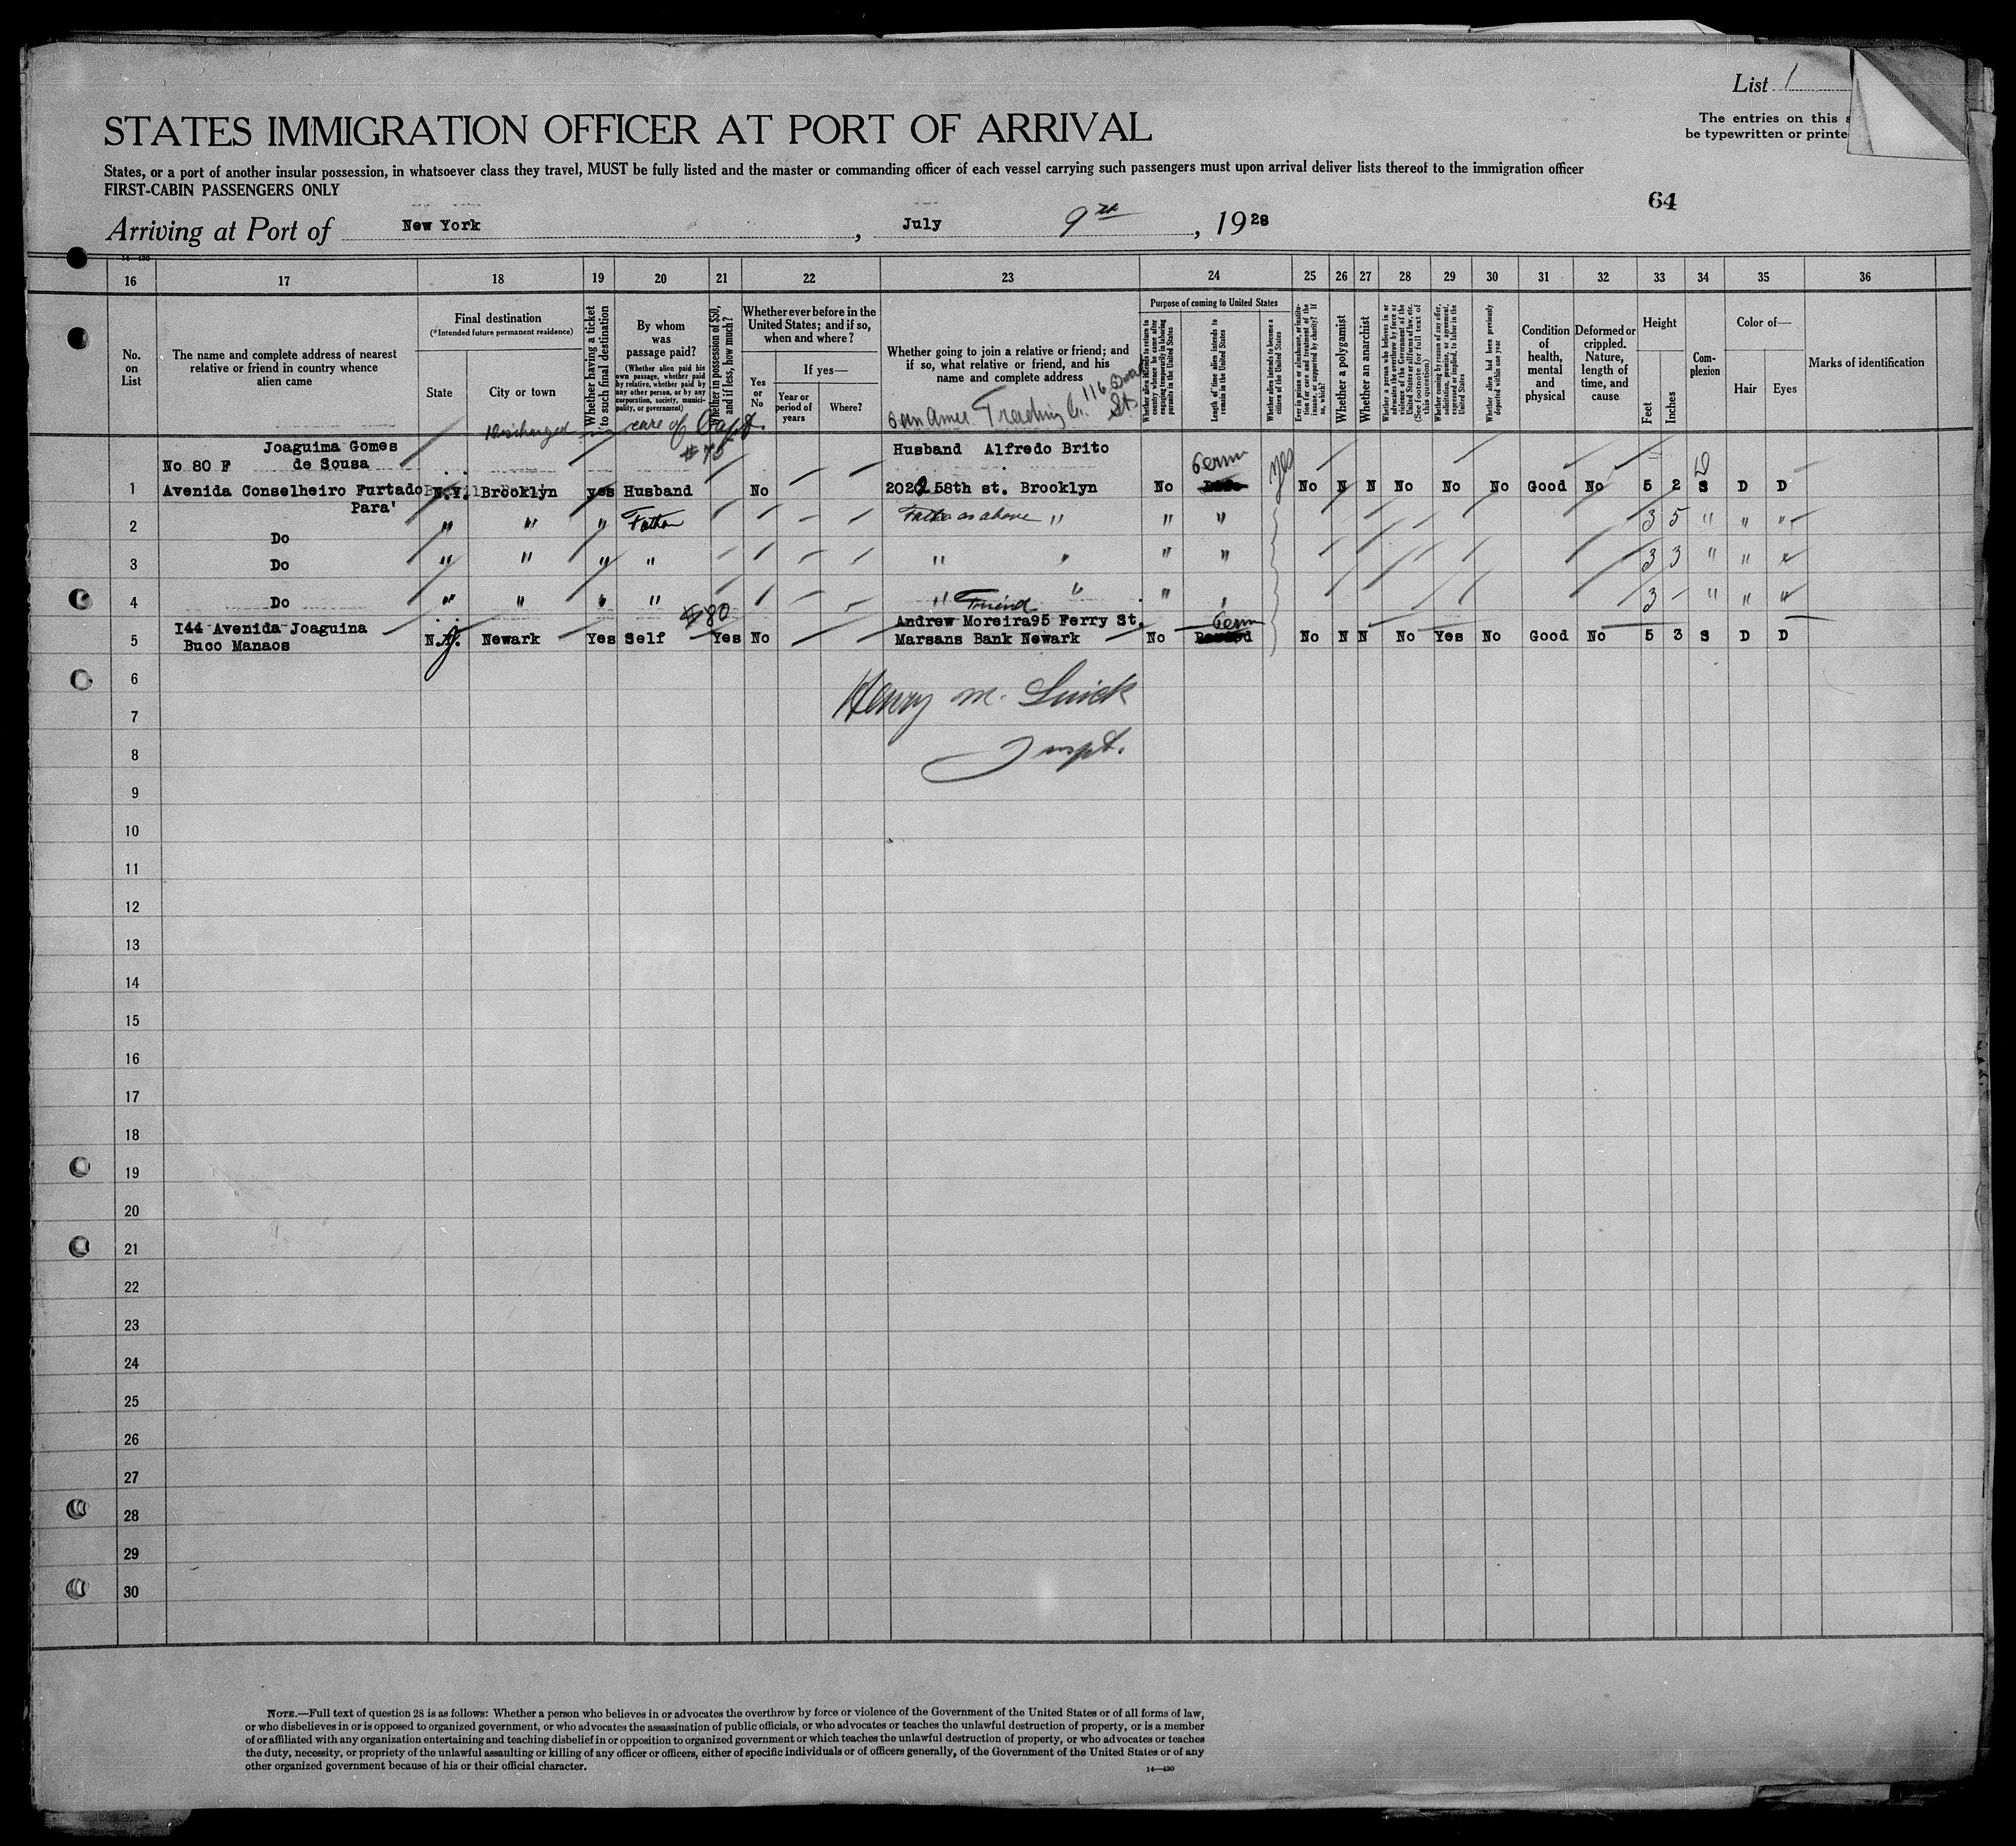 List 1
The entries on this s
be typewritten or printe
STATES IMMIGRATION OFFICER AT PORT OF ARRIVAL
States, or a port of another insular possession, in whatsoever class they travel, MUST be fully listed and the master or commanding officer of each vessel carrying such passengers must upon arrival deliver lists thereof to the immigration officer
FIRST-CABIN PASSENGERS ONLY
64
Arriving at Port of New York, July 9th, 1928
16 17 18 19 20 21 22 23 24 25 26 27 28 29 30 31 32 33 34 35 36
No. on List
The name and complete address of nearest relative or friend in country whence alien came
Final destination
(*Intended future permanent residence)
State
City or town
Whether having a ticket to such final destination
By whom was passage paid?
(Whether alien paid his own passage, whether paid by relative, whether paid by any other person, or by any corporation, society, municipality, or government)
Whether in possession of $50, and if less, how much?
Whether ever before in the United States; and if so, when and where?
Yes or No
If yes—
Year or period of years
Where?
Whether going to join a relative or friend; and if so, what relative or friend, and his name and complete address
Purpose of coming to United States
Whether alien intends to return to country whence he came after engaging temporarily in laboring pursuits in the United States
Length of time alien intends to remain in the United States
Whether alien intends to become a citizen of the United States
Ever in prison or almshouse, or institution for care and treatment of the insane, or supported by charity? If so, which?
Whether a polygamist
Whether an anarchist
Whether a person who believes in or advocates the overthrow by force or violence of the Government of the United States or all forms of law, etc. (See footnote for full text of this question)
Whether coming by reason of any offer, solicitation, promise, or agreement, expressed or implied, to labor in the United States
Whether alien had been previously deported within one year
Condition of health, mental and physical
Deformed or crippled. Nature, length of time, and cause
Height
Feet
Inches
Complexion
Color of—
Hair
Eyes
Marks of identification
Discharged in care of Capt.
Amer. Trading Co. 116 St.
Joaguima Gomes
No 80 F de Sousa $75 Husband Alfredo Brito Perm yes D
1 Avenida Conselheiro Furtado N.Y. Brooklyn yes Husband No 2022 58th st. Brooklyn No No N N No No No Good No 5 2 S D D
Para'
2 Do " " " Father Father as above " " " 3 5 " " "
3 Do " " " " " " " " 3 3 " "
4 Do " " " " " " " 3 - " " "
$80 Friend
I44 Avenida Joaguina Andrew Moreira95 Ferry St. Perm
5 Buco Manaos N.J. Newark Yes Self Yes No Marsans Bank Newark No No N N No Yes No Good No 5 3 S D D
6
Henry M.
7
Inspt.
8
9
10
11
12
13
14
15
16
17
18
19
20
21
22
23
24
25
26
27
28
29
30
NOTE.—Full text of question 28 is as follows: Whether a person who believes in or advocates the overthrow by force or violence of the Government of the United States or of all forms of law,
or who disbelieves in or is opposed to organized government, or who advocates the assassination of public officials, or who advocates or teaches the unlawful destruction of property, or is a member
of or affiliated with any organization entertaining and teaching disbelief in or opposition to organized government or which teaches the unlawful destruction of property, or who advocates or teaches
the duty, necessity, or propriety of the unlawful assaulting or killing of any officer or officers, either of specific individuals or of officers generally, of the Government of the United States or of any
other organized government because of his or their official character.
14—430